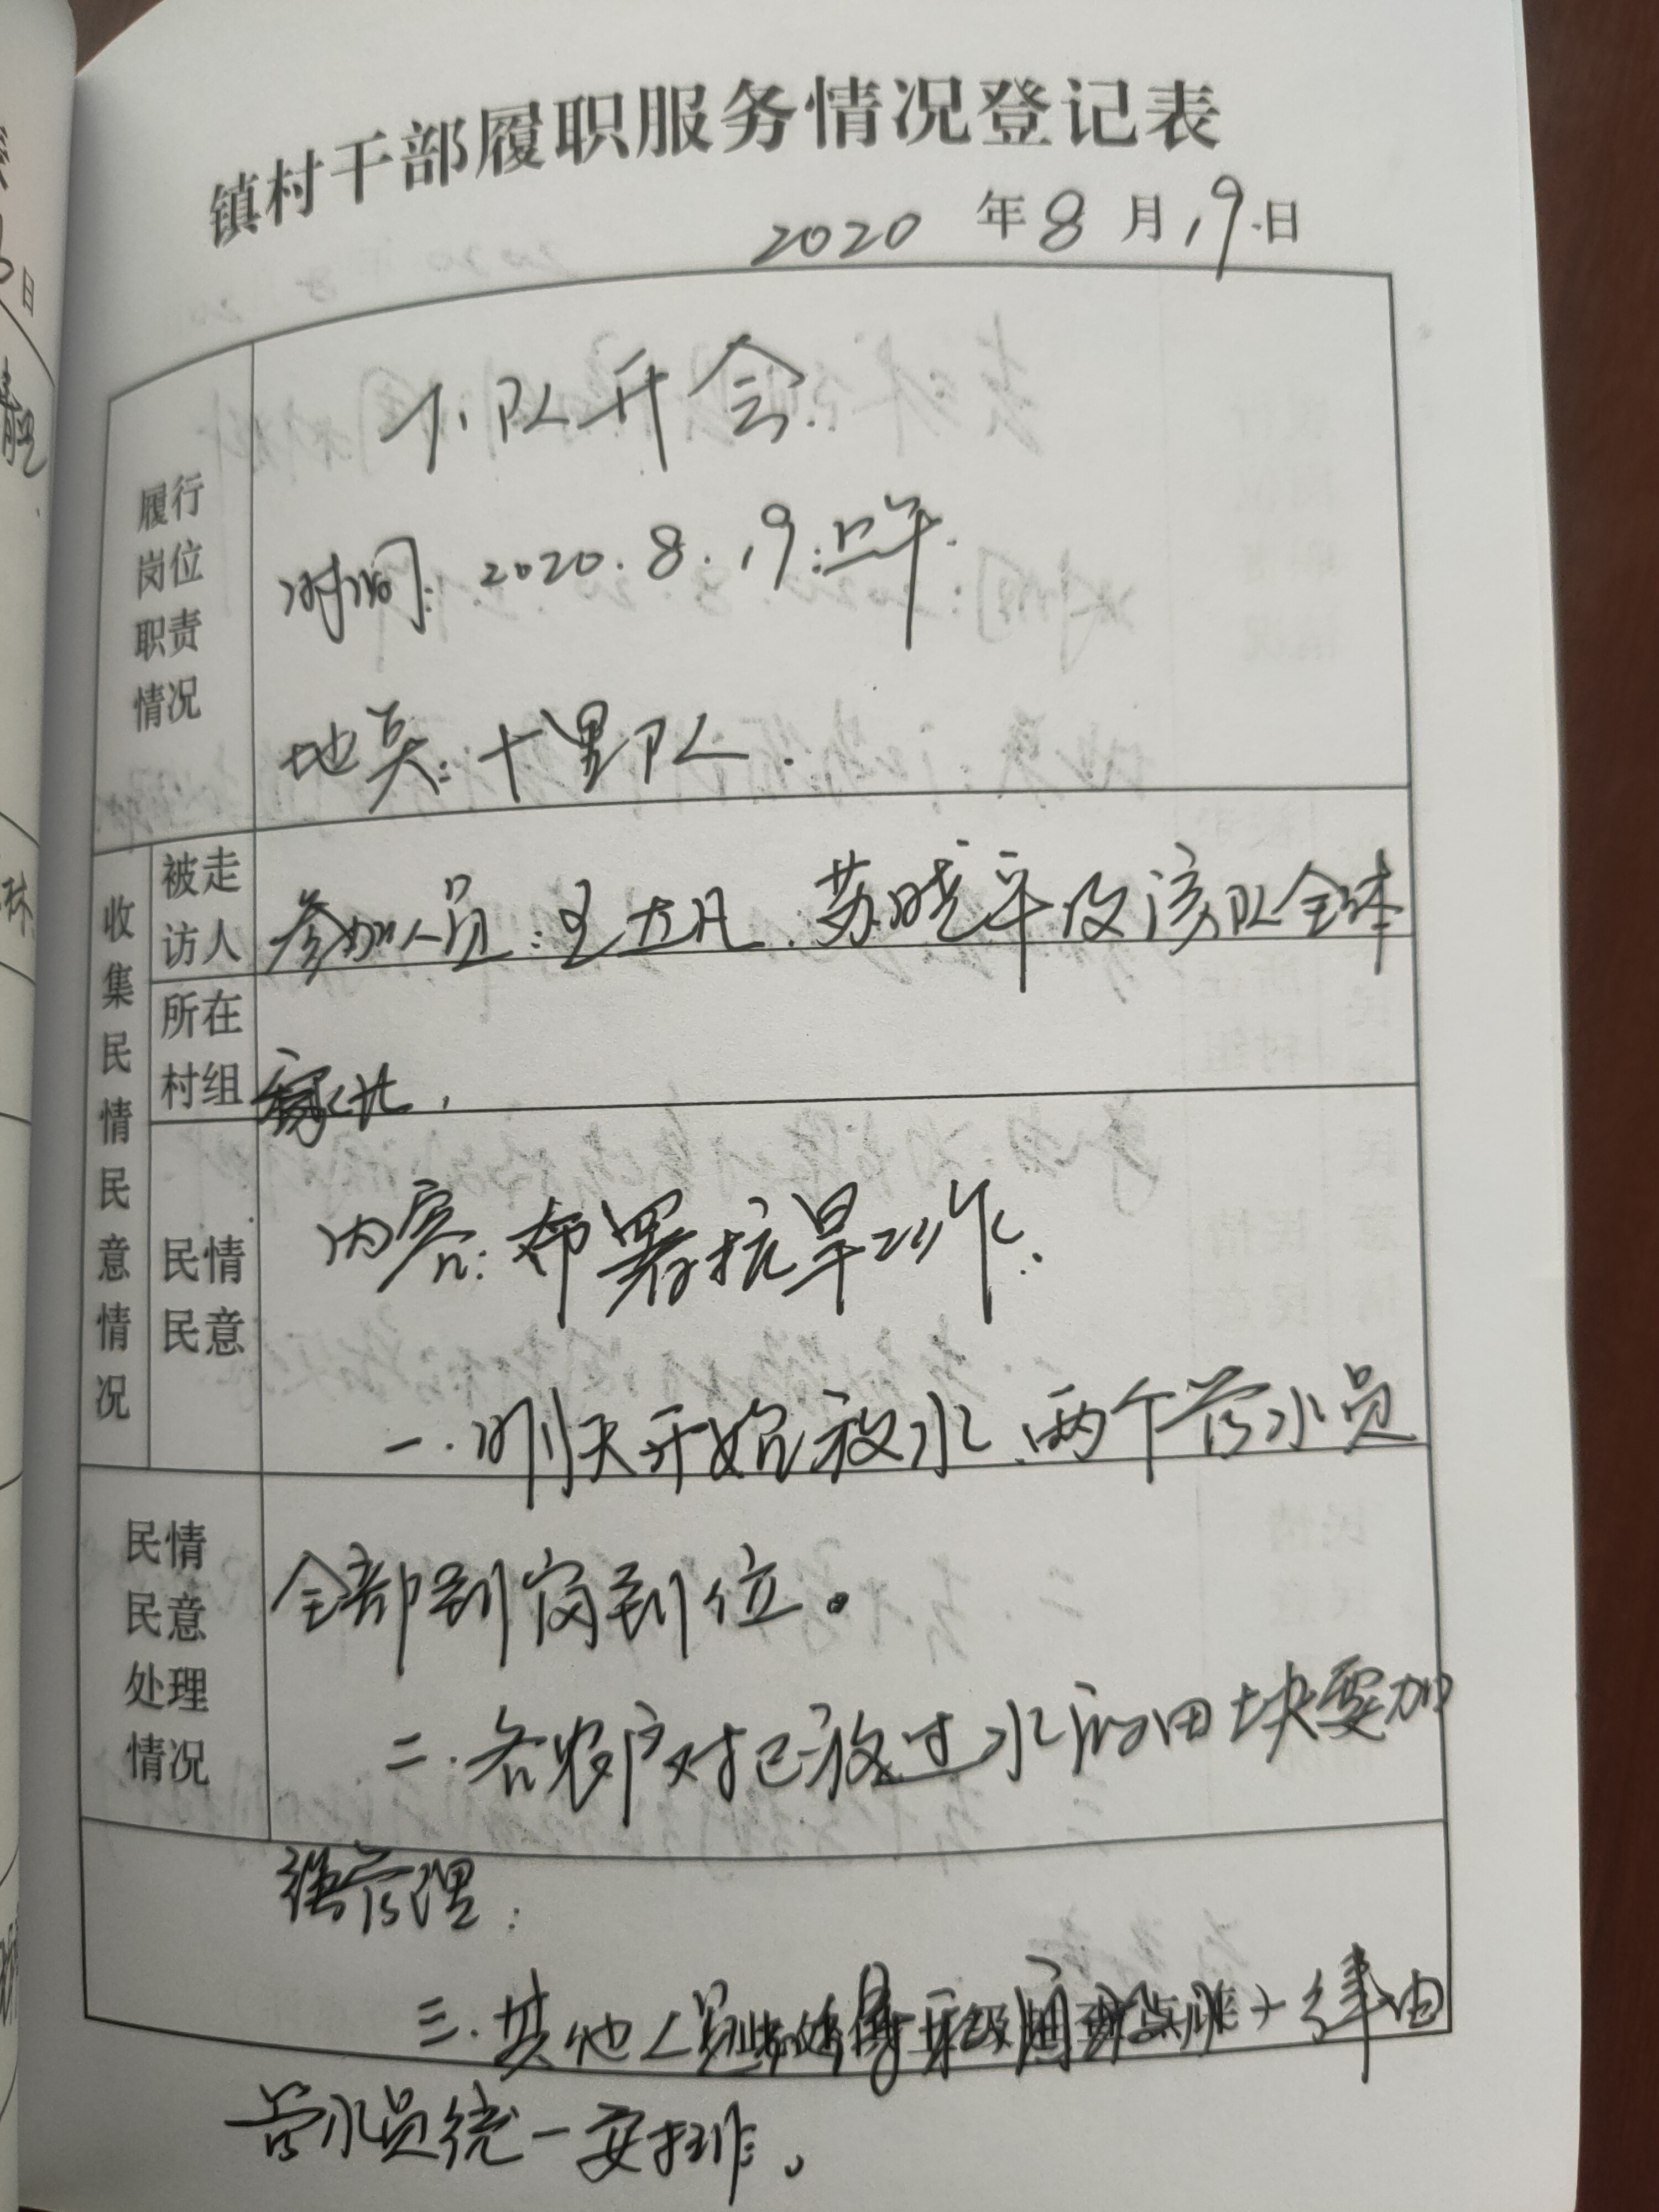 镇村干部履职服务情况登记表
2020 年 8 月 19 日
履行岗位职责情况
小队开会
时间: 2020.8.19.上午.
地点: 十里队.
收集民情民意情况
被走访人
参加人员: 王士凡、苏晓平及该队全体
所在村组
民情民意
内容: 布署抗旱工作.
一. 明天开始放水、两个管水员
民情民意处理情况
全部到岗到位。
二. 各农户对已放过水的田块要加
强管理;
三. 其他人员 一律由
管水员统一安排。